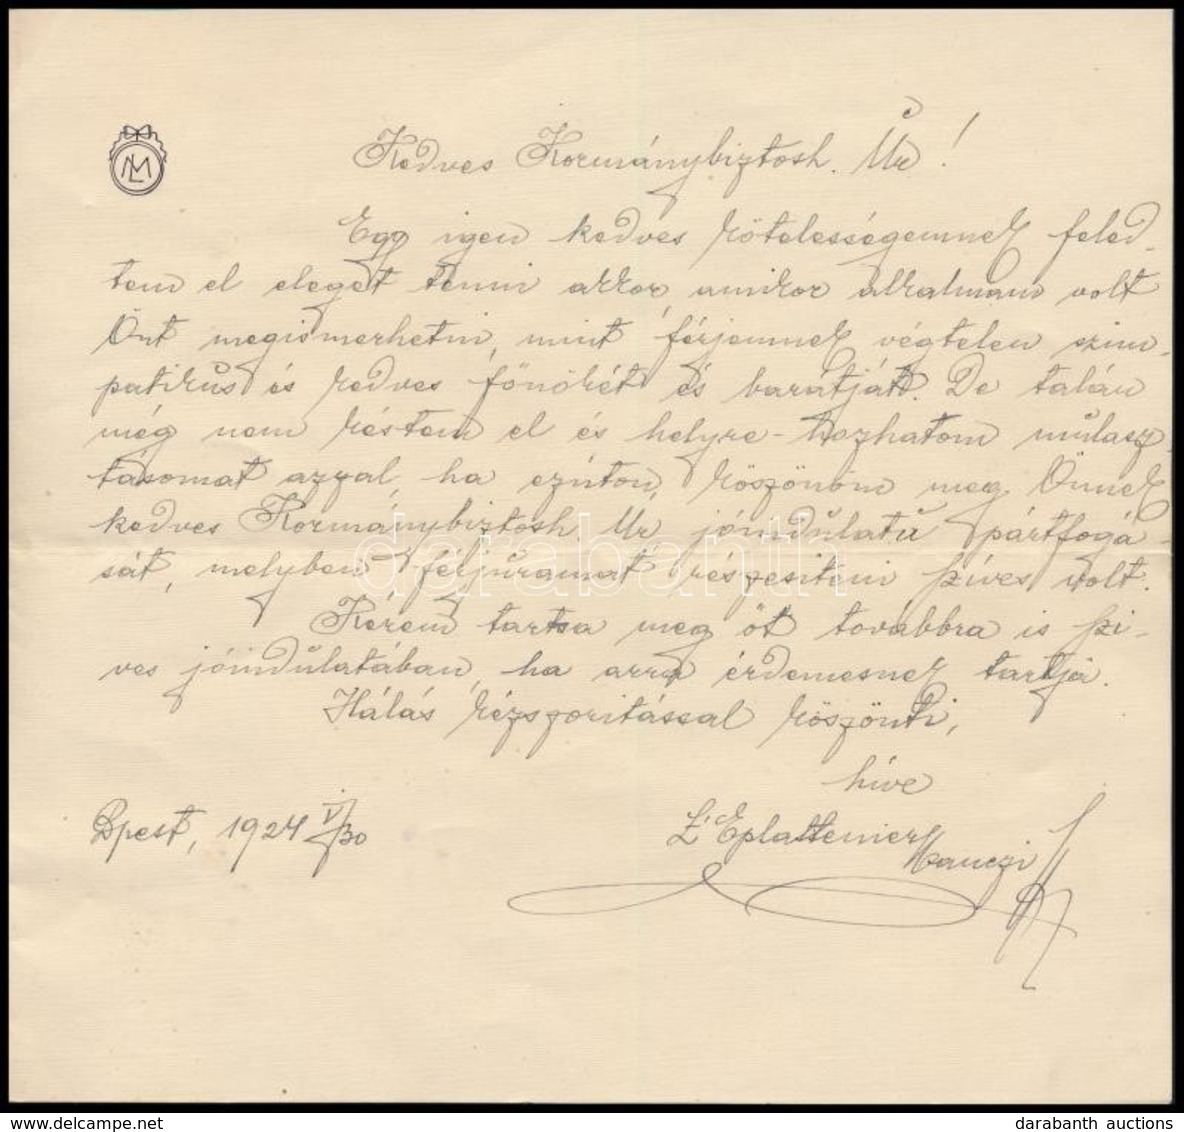 LM
Kedves Kormánybiztosh. Úr!
Egy igen kedves kötelességemnek feled-
tem el eleget tenni akkor, amikor alkalmam volt
Önt megismerhetni, mint férjemnek végtelen szim-
patikus és kedves főnökét és barátját. De talán
még nem késtem el és helyre-hozhatom mulasz-
tásomat azzal, ha ezúton, köszönöm meg Önnek
kedves Kormánybiztosh. Úr jóindulatú pártfogá-
sát, melyben férjuramat részesíteni szíves volt.
Kérem tartsa meg őt továbbra is szí-
ves jóindulatában, ha arra érdemesnek tartja.
Hálás kézszorítással köszönti,
híve
Bpest, 1924 V/30
L'Eplattenier
Manczi
darabanth
delcampe.net
darabanth auctions